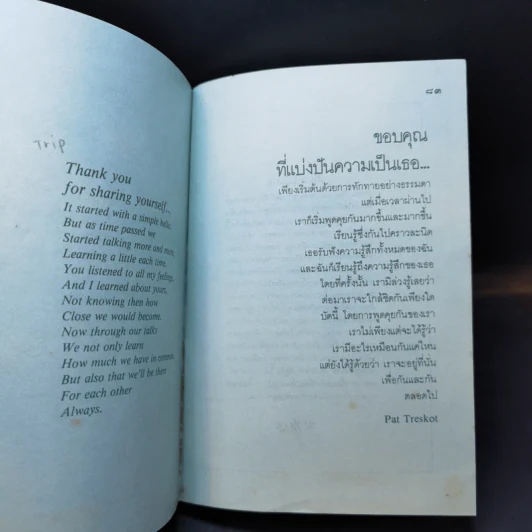 Trip
Thank you
for sharing yourself...
It started with a simple hello.
But as time passed we
Started talking more and more,
Learning a little each time.
You listened to all my feelings,
And I learned about yours,
Not knowing then how
Close we would become.
Now through our talks
We not only learn
How much we have in common,
But also that we'll be there
For each other
Always.
๘๓
ขอบคุณ
ที่แบ่งปันความเป็นเธอ...
เพียงเริ่มต้นด้วยการทักทายอย่างธรรมดา
แต่เมื่อเวลาผ่านไป
เราก็เริ่มพูดคุยกันมากขึ้นและมากขึ้น
เรียนรู้ซึ่งกันไปคราวละนิด
เธอรับฟังความรู้สึกทั้งหมดของฉัน
และฉันก็เรียนรู้ถึงความรู้สึกของเธอ
โดยที่ครั้งนั้น เรามิล่วงรู้เลยว่า
ต่อมาเราจะใกล้ชิดกันเพียงใด
บัดนี้ โดยการพูดคุยกันของเรา
เราไม่เพียงแต่จะได้รู้ว่า
เรามีอะไรเหมือนกันแค่ไหน
แต่ยังได้รู้ด้วยว่า เราจะอยู่ที่นั่น
เพื่อกันและกัน
ตลอดไป
Pat Treskot